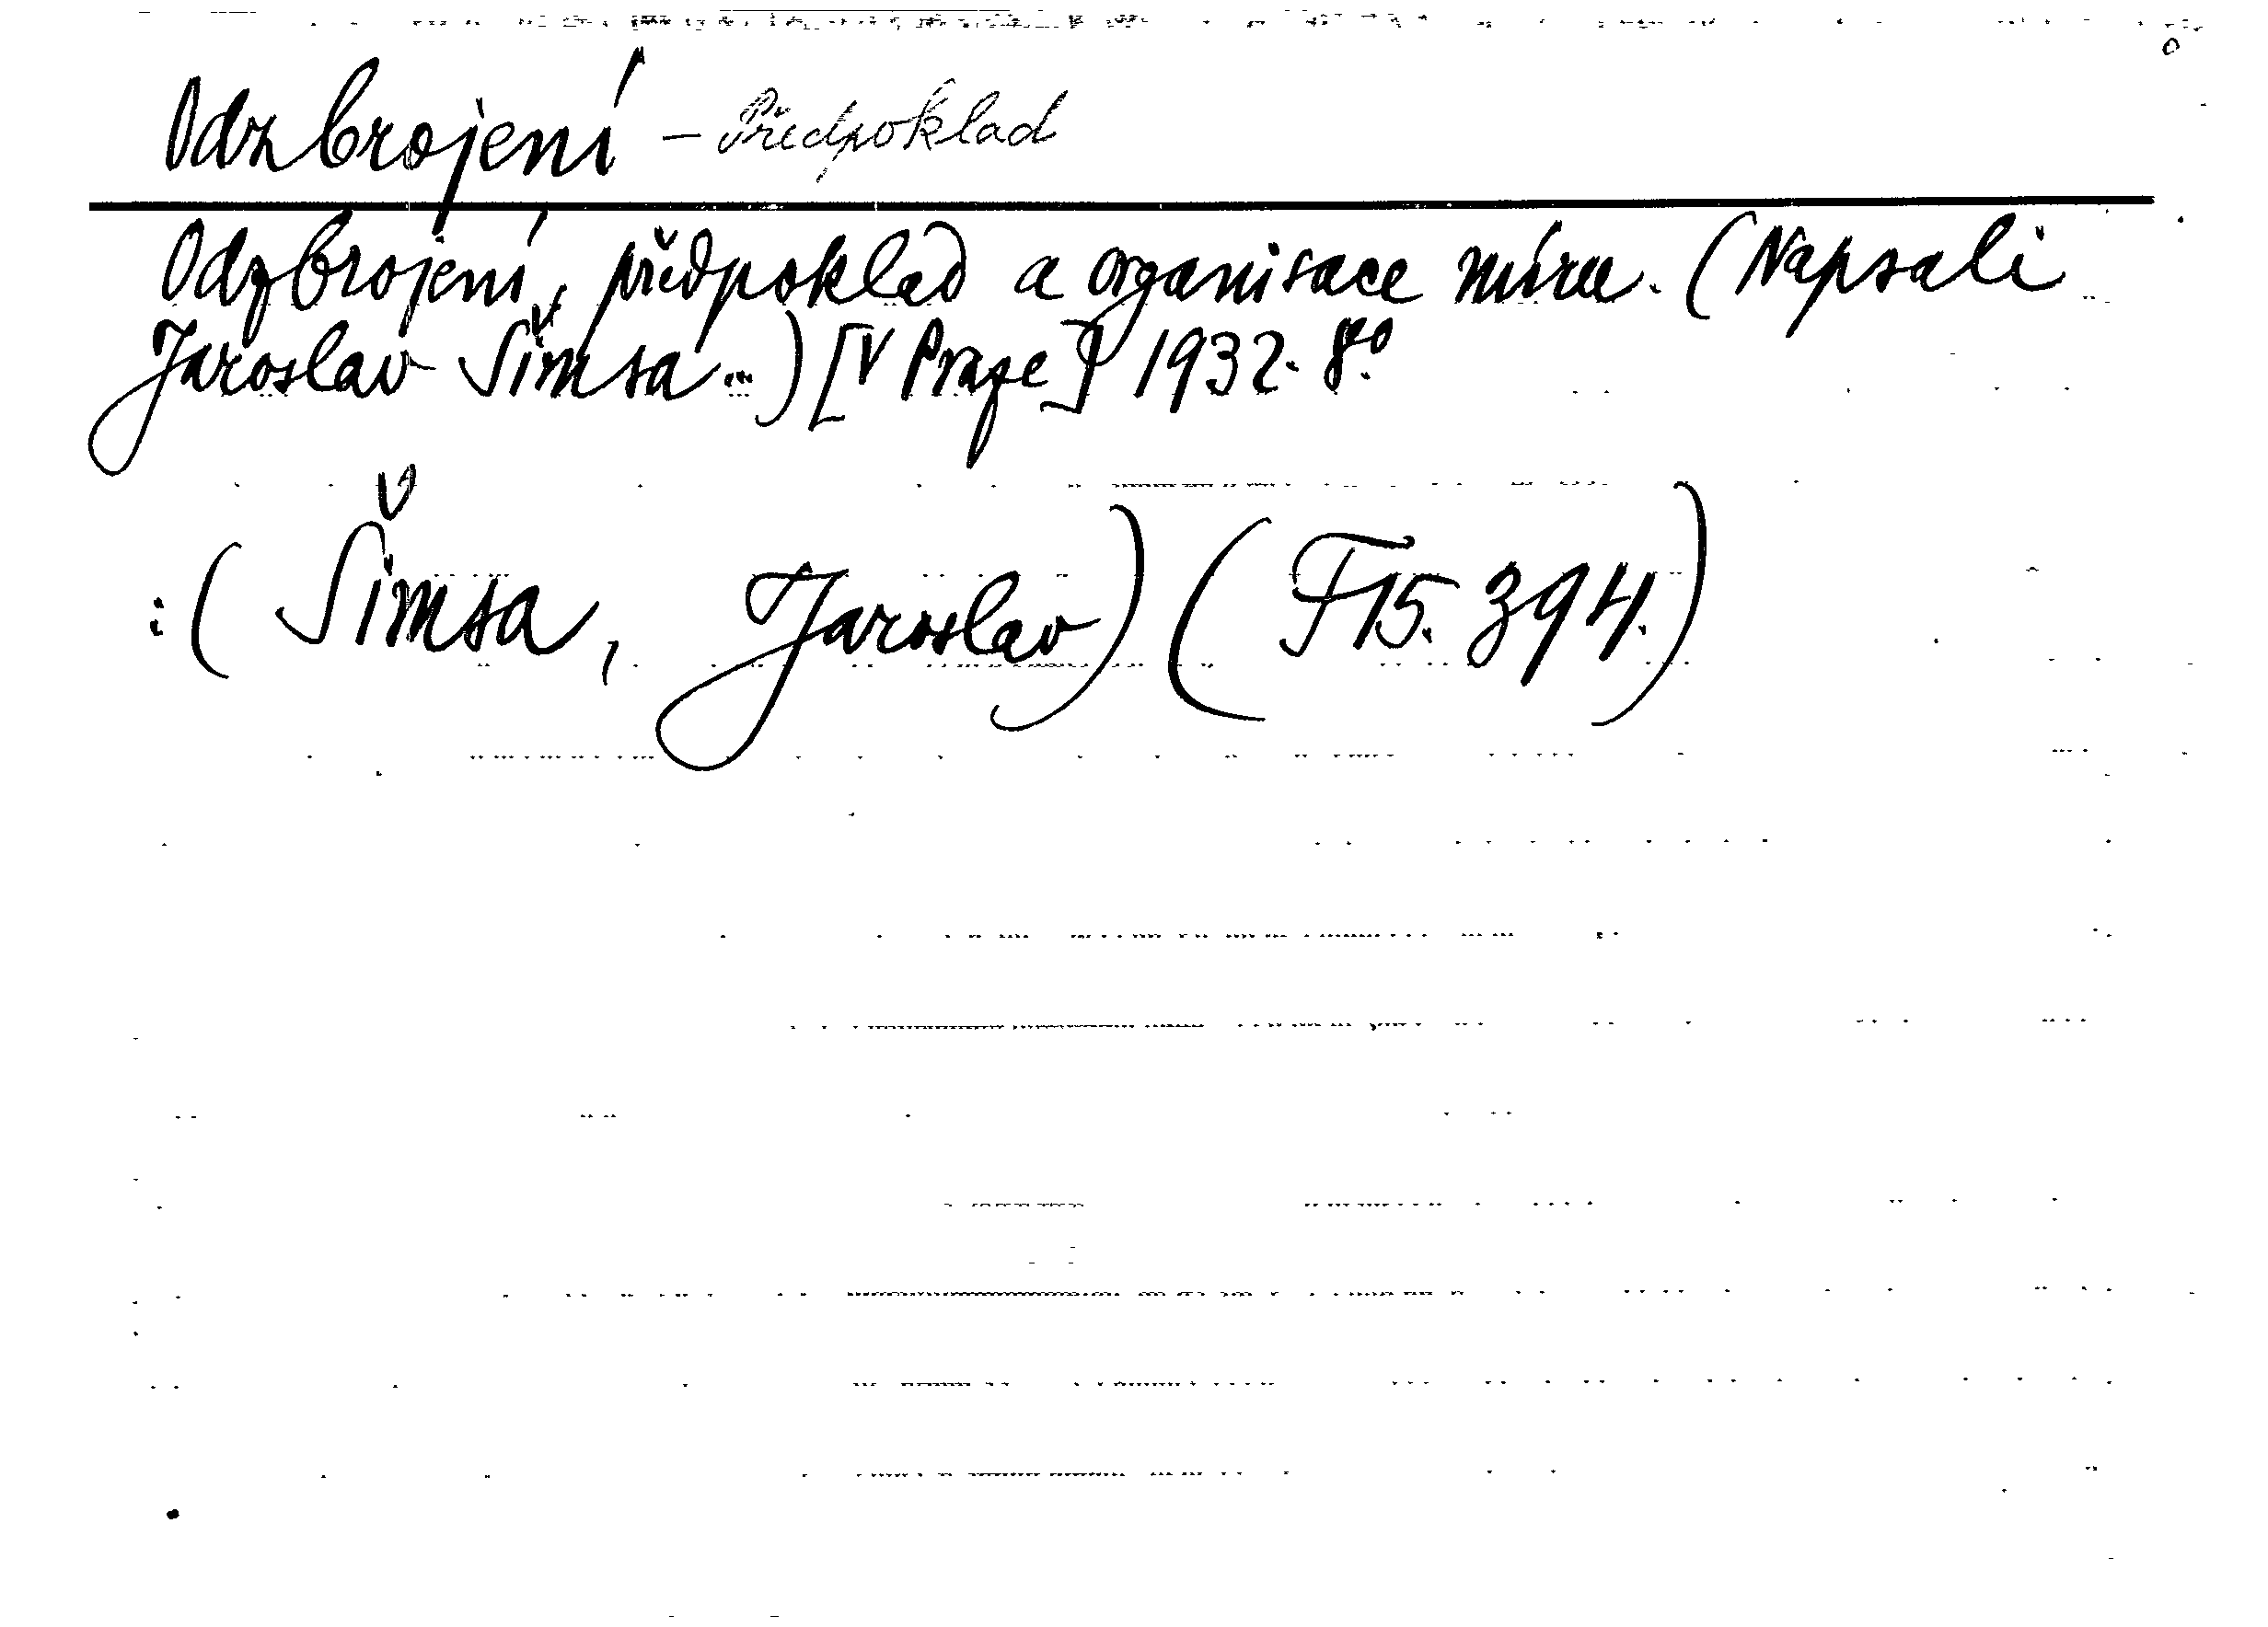 Odzbrojení - Předpoklad
Odzbrojení, předpoklad a organisace míru. (Napsali
Jaroslav Šimsa...) [V Praze] 1932. 8°.
:( Šimsa, Jaroslav) (F 15. 394.)